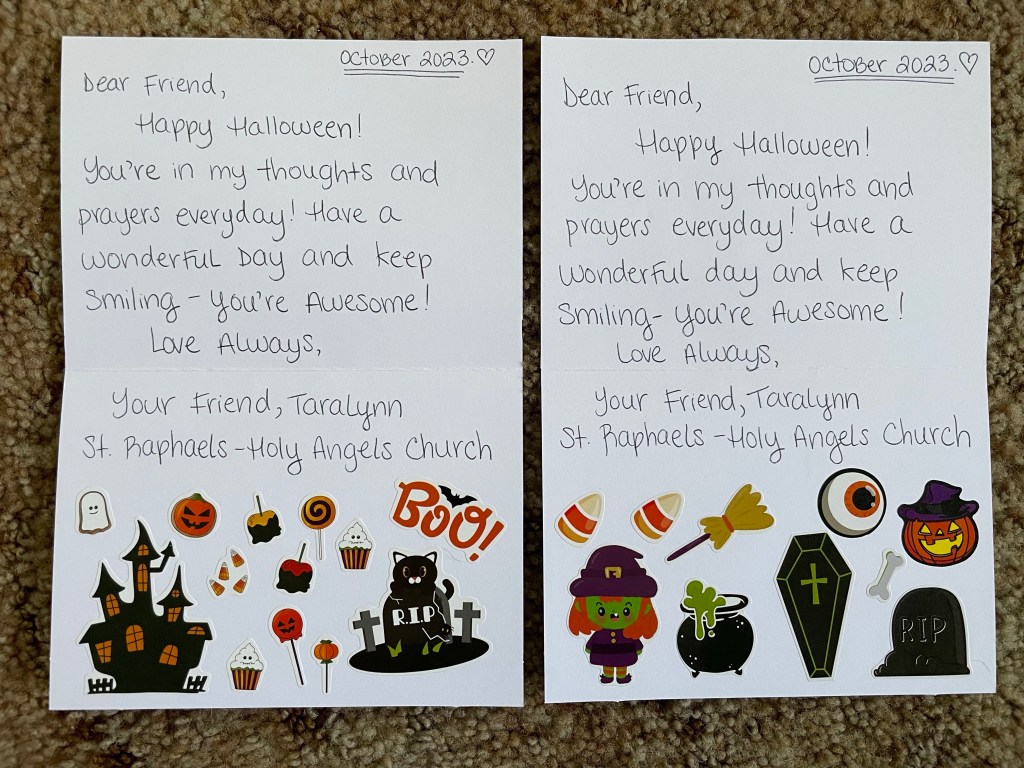 October 2023.♡
Dear Friend,
Happy Halloween!
You're in my thoughts and
prayers everyday! Have a
wonderful Day and keep
Smiling - You're Awesome!
Love Always,
Your Friend, Taralynn
St. Raphaels - Holy Angels Church
BOO!
R.I.P
October 2023.♡
Dear Friend,
Happy Halloween!
You're in my thoughts and
prayers everyday! Have a
wonderful day and keep
Smiling - You're Awesome!
Love Always,
Your Friend, Taralynn
St. Raphaels - Holy Angels Church
RIP